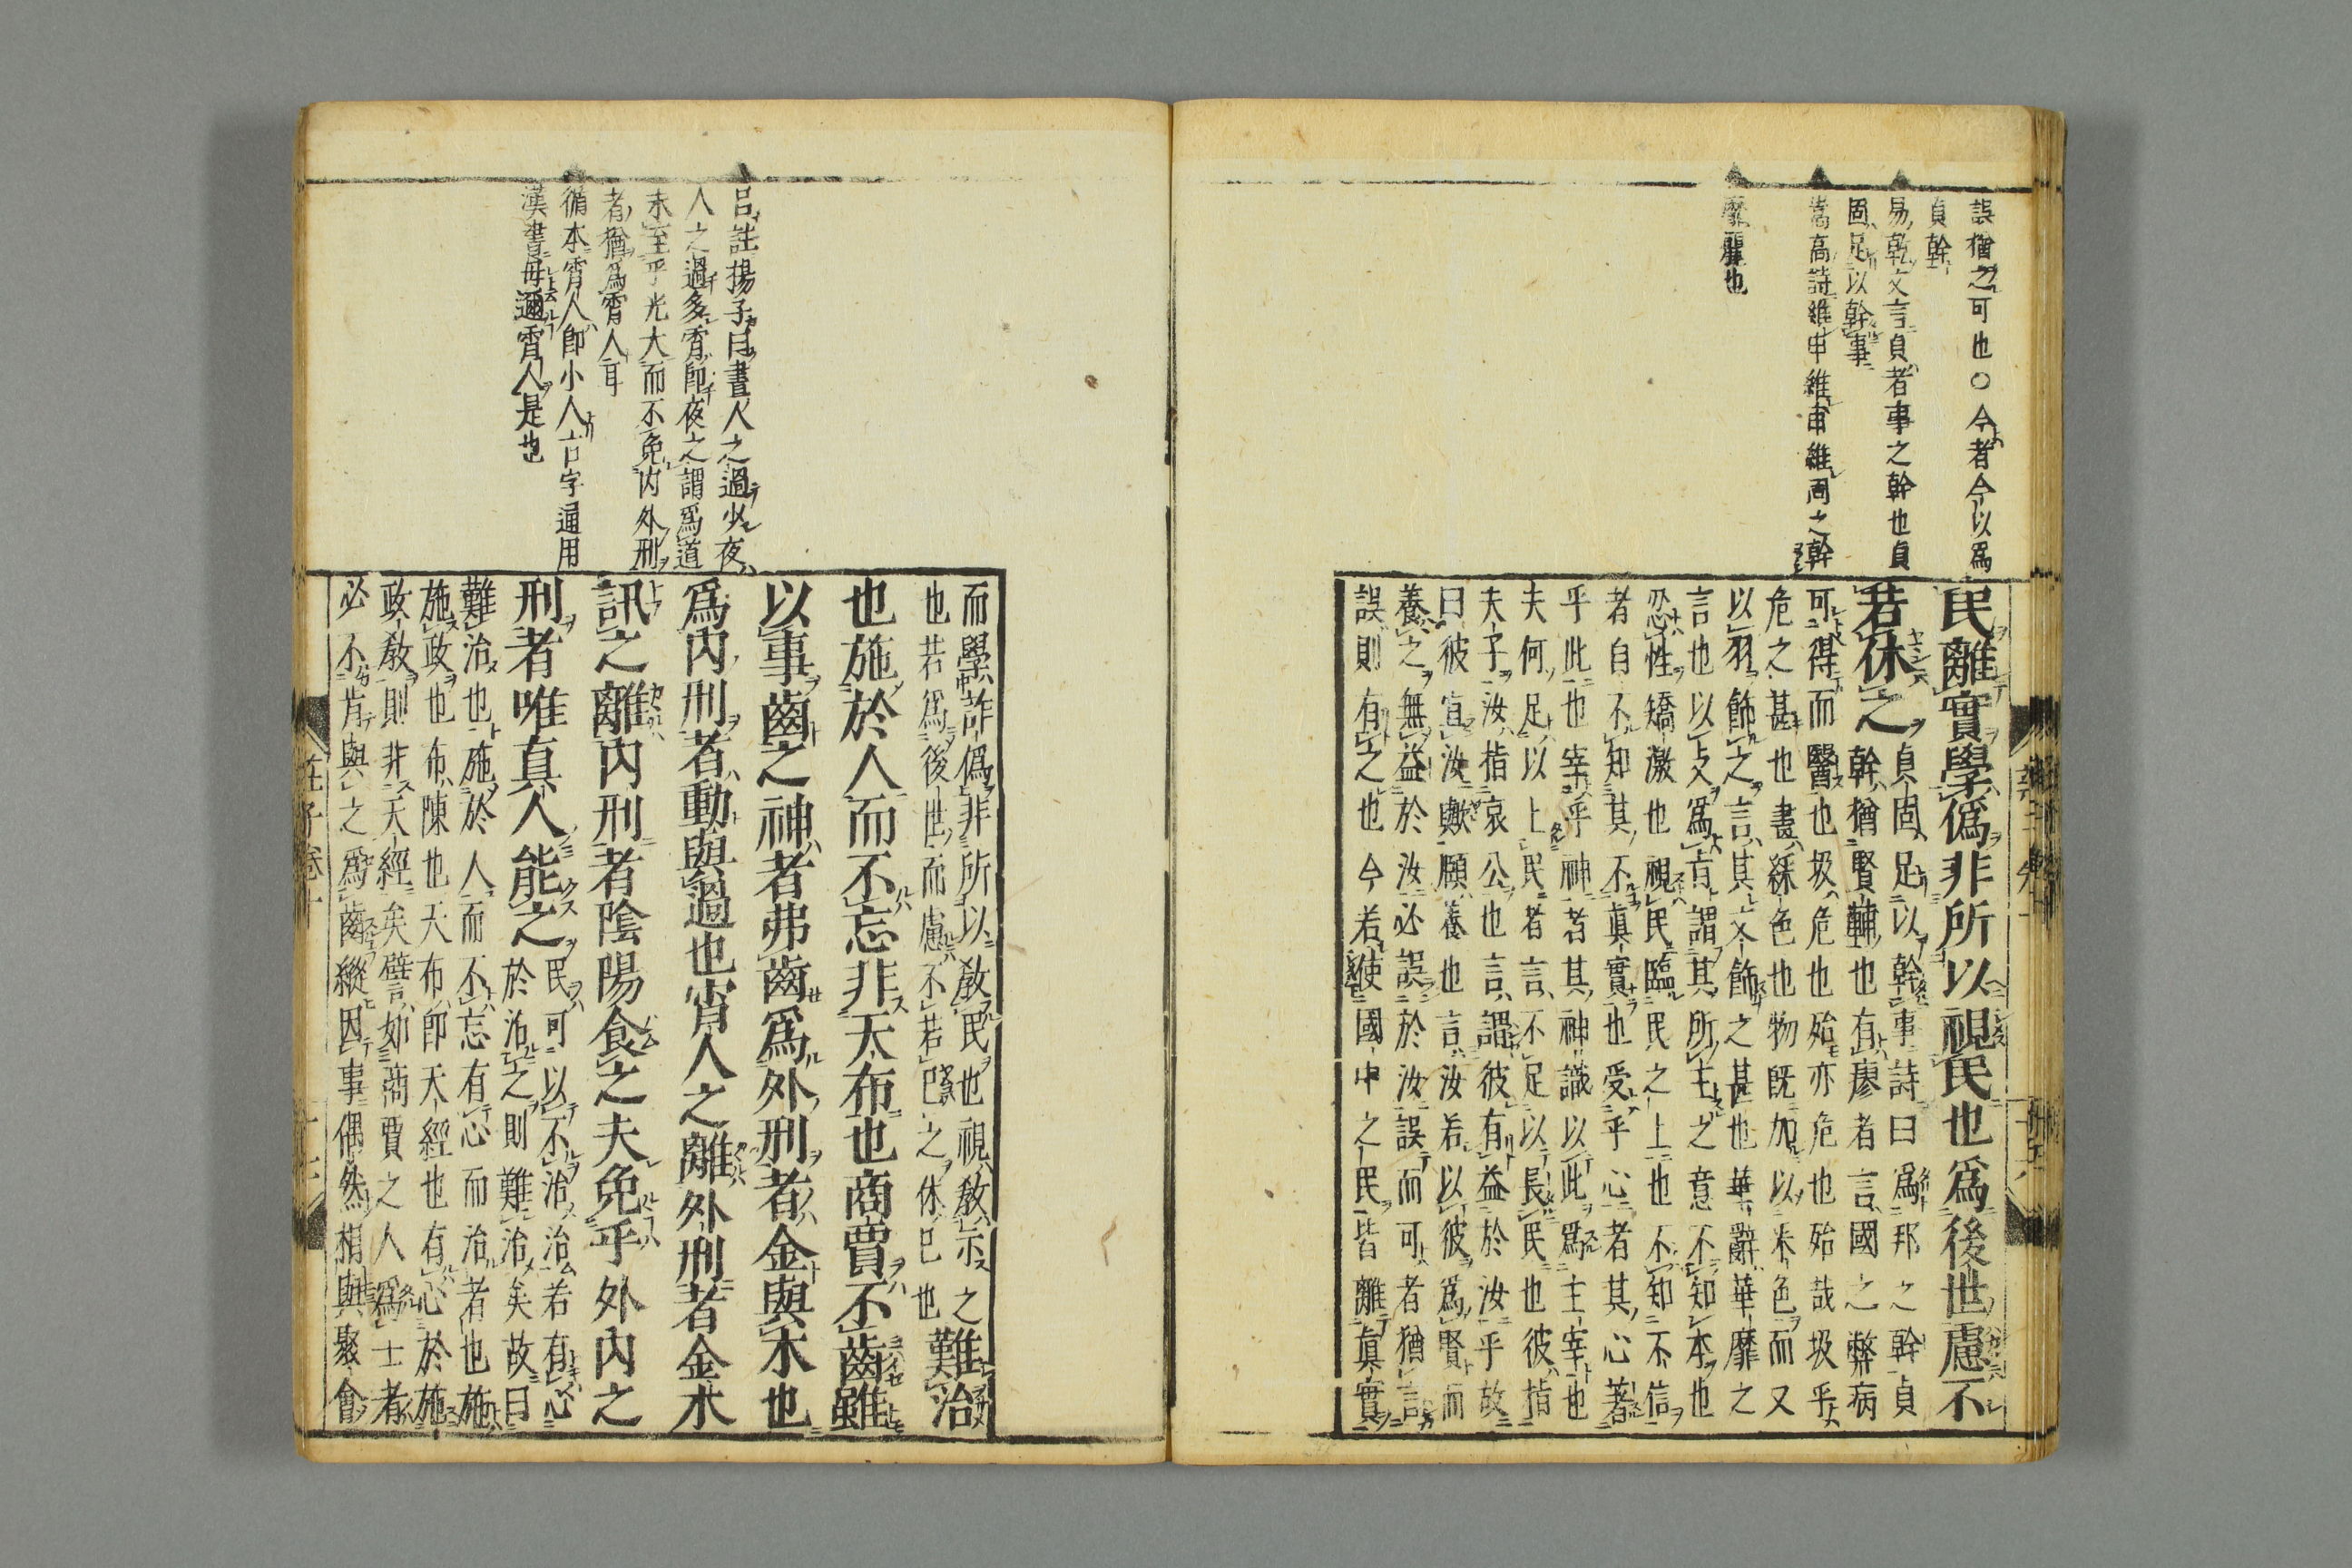 誤猶之可也○今者今以爲
貞幹
易乾文言貞者事之幹也貞
固足以幹事
嵩高詩維申維甫維周之幹
靡麗也
民離實學僞非所以視民也爲後世慮不
若休之
貞固足以幹事詩曰爲邦之幹貞
幹猶賢輔也有廖者言國之弊病
可得而醫也圾危也殆亦危也殆哉圾乎
危之甚也畫綵色也物旣加以米色而又
以羽飾之言其文飾之甚也華辭華靡之
言也以支爲旨謂其所主之意不知本也
忍性矯激也視民臨民之上也不知不信
者自不知其不眞實也受乎心者其心著
乎此也宰乎神者其神識以此爲主宰也
夫何足以上民者言不足以長民也彼指
夫子汝指哀公也言謂彼有益於汝乎故
曰彼宜汝歟願養也言汝若以彼爲賢而
養之無益於汝必誤於汝誤而可者猶言
誤則有之也今若使國中之民皆離眞實
而學詐僞非所以敎民也視敎示之
也若爲後世而慮不若已之休已也
難治
也施於人而不忘非天布也商賈不齒雖
以事齒之神者弗齒爲外刑者金與木也
爲內刑者動與過也宵人之離外刑者金木
訊之離內刑者陰陽食之夫免乎外內之
刑者唯真人能之
民可以不治治若有心
於治之則難治矣故曰
難治也施於人而不忘有心而治者也施
施政也布陳也天布卽天經也有心於施
政敎則非天經矣譬如商賈之人爲士者
必不肯與之爲齒縱因事偶然相與聚會
呂註揚子曰晝人之過少夜
人之過多宵卽夜之謂爲道
未至乎光大而不免內外刑
者猶爲宵人耳
循本宵人卽小人古字通用
漢書毋邇宵人是也
莊子卷十